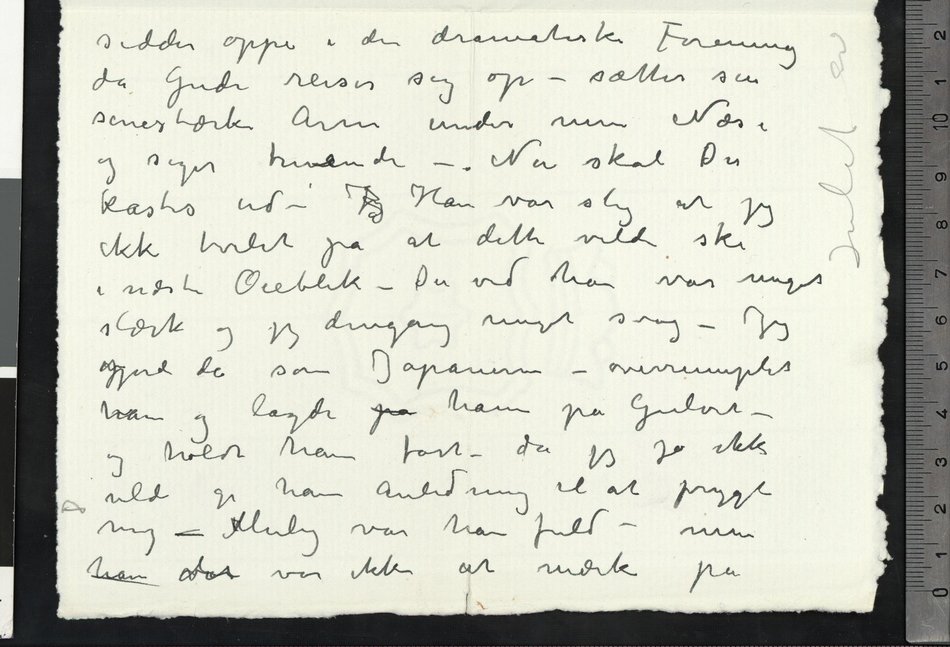 sidder oppe i den dramatiske Forening
da Gude reiser sig op – sætter sin
senestærke Arm under min Næse
og siger truende – Nu skal Du
kastes ud – Jeg Han var slig at jeg
ikke tvilet på at dette vilde ske
i næste Øieblik – Du ved han var meget
stærk og jeg dengang meget svag – Jeg
gjorde da som Japanerne – overrumplet
ham og lagde på ham på Gulvet –
og holdt ham fast – da jeg jo ikke
vilde gi ham Anledning til at prygle
mig – Mulig var han fuld – men
ham det var ikke at mærke på